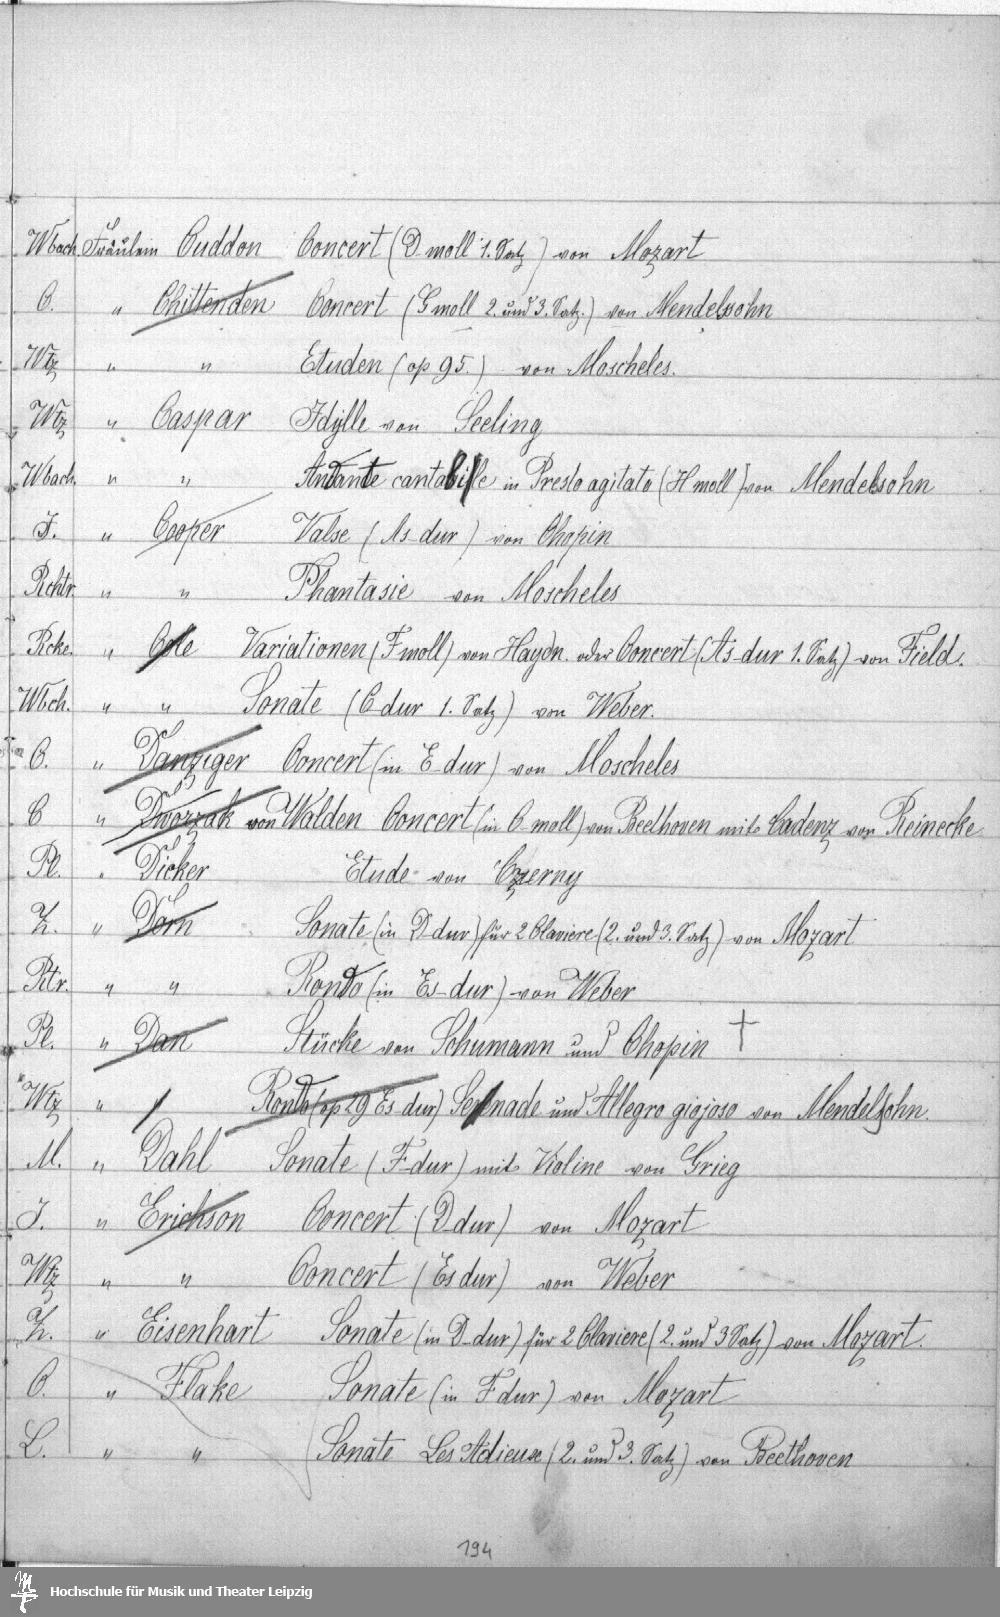 Wbach. Fräulein Cuddon Concert (D moll 1. Satz) von Mozart
C. " Chittenden Concert (G moll 2. und 3. Satz.) von Mendelssohn
Wtz " " Etuden (op 95.) von Moscheles.
Wtz " Caspar Idÿlle von Seeling
Wbach. " " Andante cantabile in Presto agitato (H moll) von Mendelssohn
J. " Cooper Valse (As-dur) von Chopin
Rchtr. " " Phantasie von Moscheles
Rcke. " Cole Variationen (F moll) von Haydn. oder Concert (As-dur 1. Satz) von Field.
Wbch. " " Sonate (C dur 1. Satz) von Weber.
C. " Danziger Concert (in E dur) von Moscheles
C " Dworzak von Walden Concert (in C moll) von Beethoven mit Cadenz von Reinecke
Pl. " Dicker Etude von Czerny
Z. " Dorn Sonate (in D dur) für 2 Claviere (2. und 3. Satz) von Mozart
Rtr. " " Rondo (in Es-dur) von Weber
Pl. " Dan Stücke von Schumann und Chopin †
Wtz " Rondo (op 29 Es dur) Serenade und Allegro giojoso von Mendelssohn.
M. " Dahl Sonate (F-dur) mit Violine von Grieg
J. " Erichson Concert (D dur) von Mozart
Wtz " " Concert (Es dur) von Weber
Z. " Eisenhart Sonate (in D-dur) für 2 Claviere (2. und 3 Satz) von Mozart.
C. " Flake Sonate (in F dur) von Mozart
L. " " Sonate Les Adieux (2. und 3. Satz) von Beethoven
194
Hochschule für Musik und Theater Leipzig